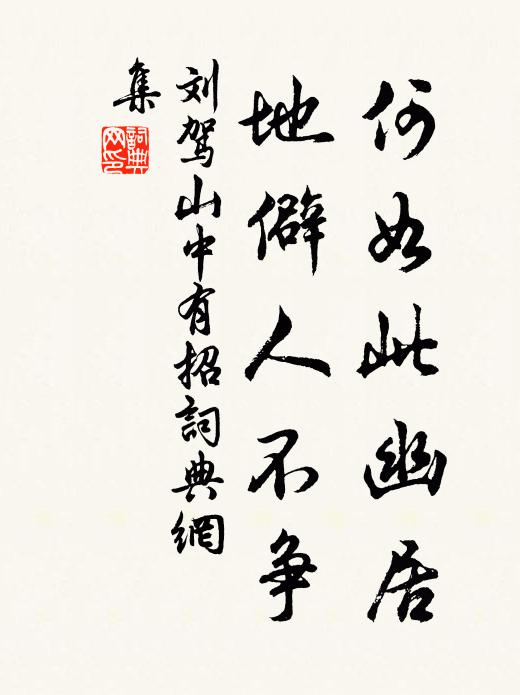 何如此幽居
地僻人不争
刘驾山中有招詞典網
集
詞典网印